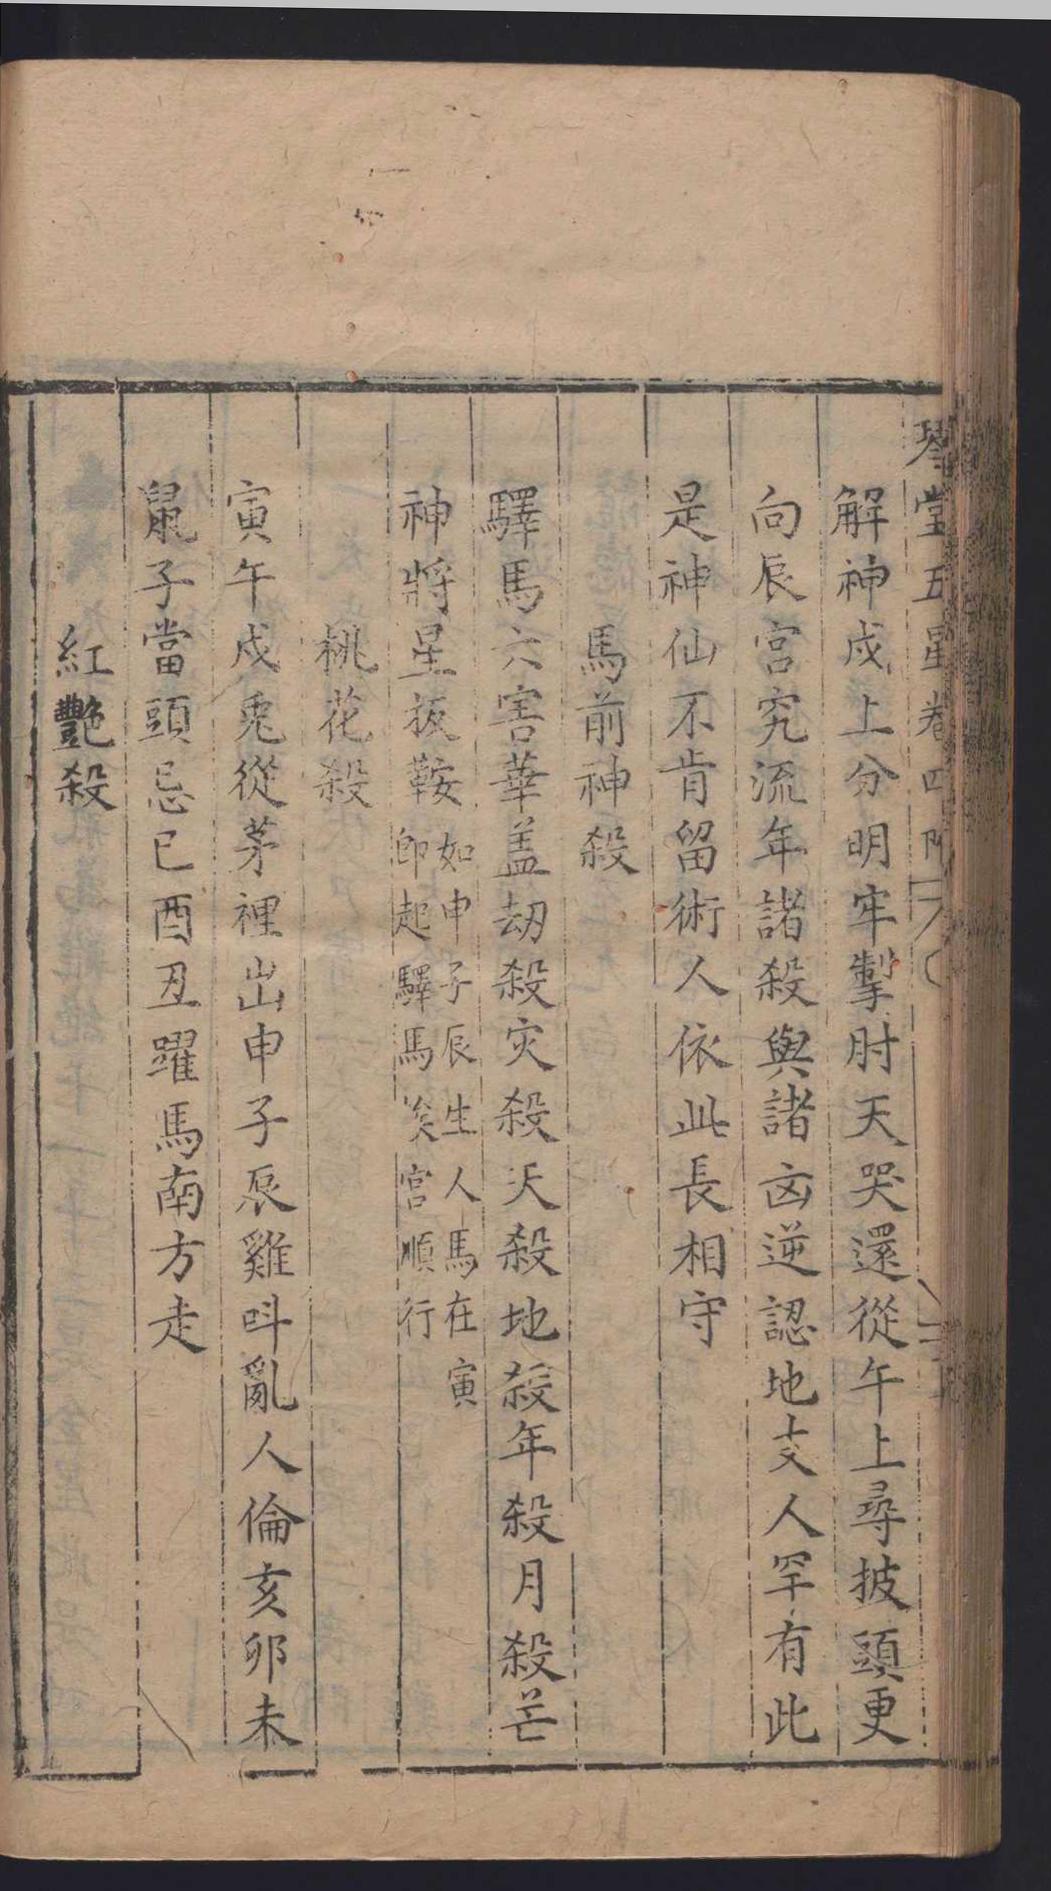 琴堂五星卷四
解神戍上分明牢掣肘天哭還從午上尋披頭更
向辰宮究流年諸殺與諸凶逆認地支人罕有此
是神仙不肯留術人依此長相守
馬前神殺
驛馬六害華盖刼殺灾殺天殺地殺年殺月殺芒
神將星扳鞍如申子辰生人馬在寅
即起驛馬矣宮順行
桃花殺
寅午戍兎從茅裡出申子辰雞呌亂人倫亥卯未
鼠子當頭忌巳酉丑躍馬南方走
紅艷殺